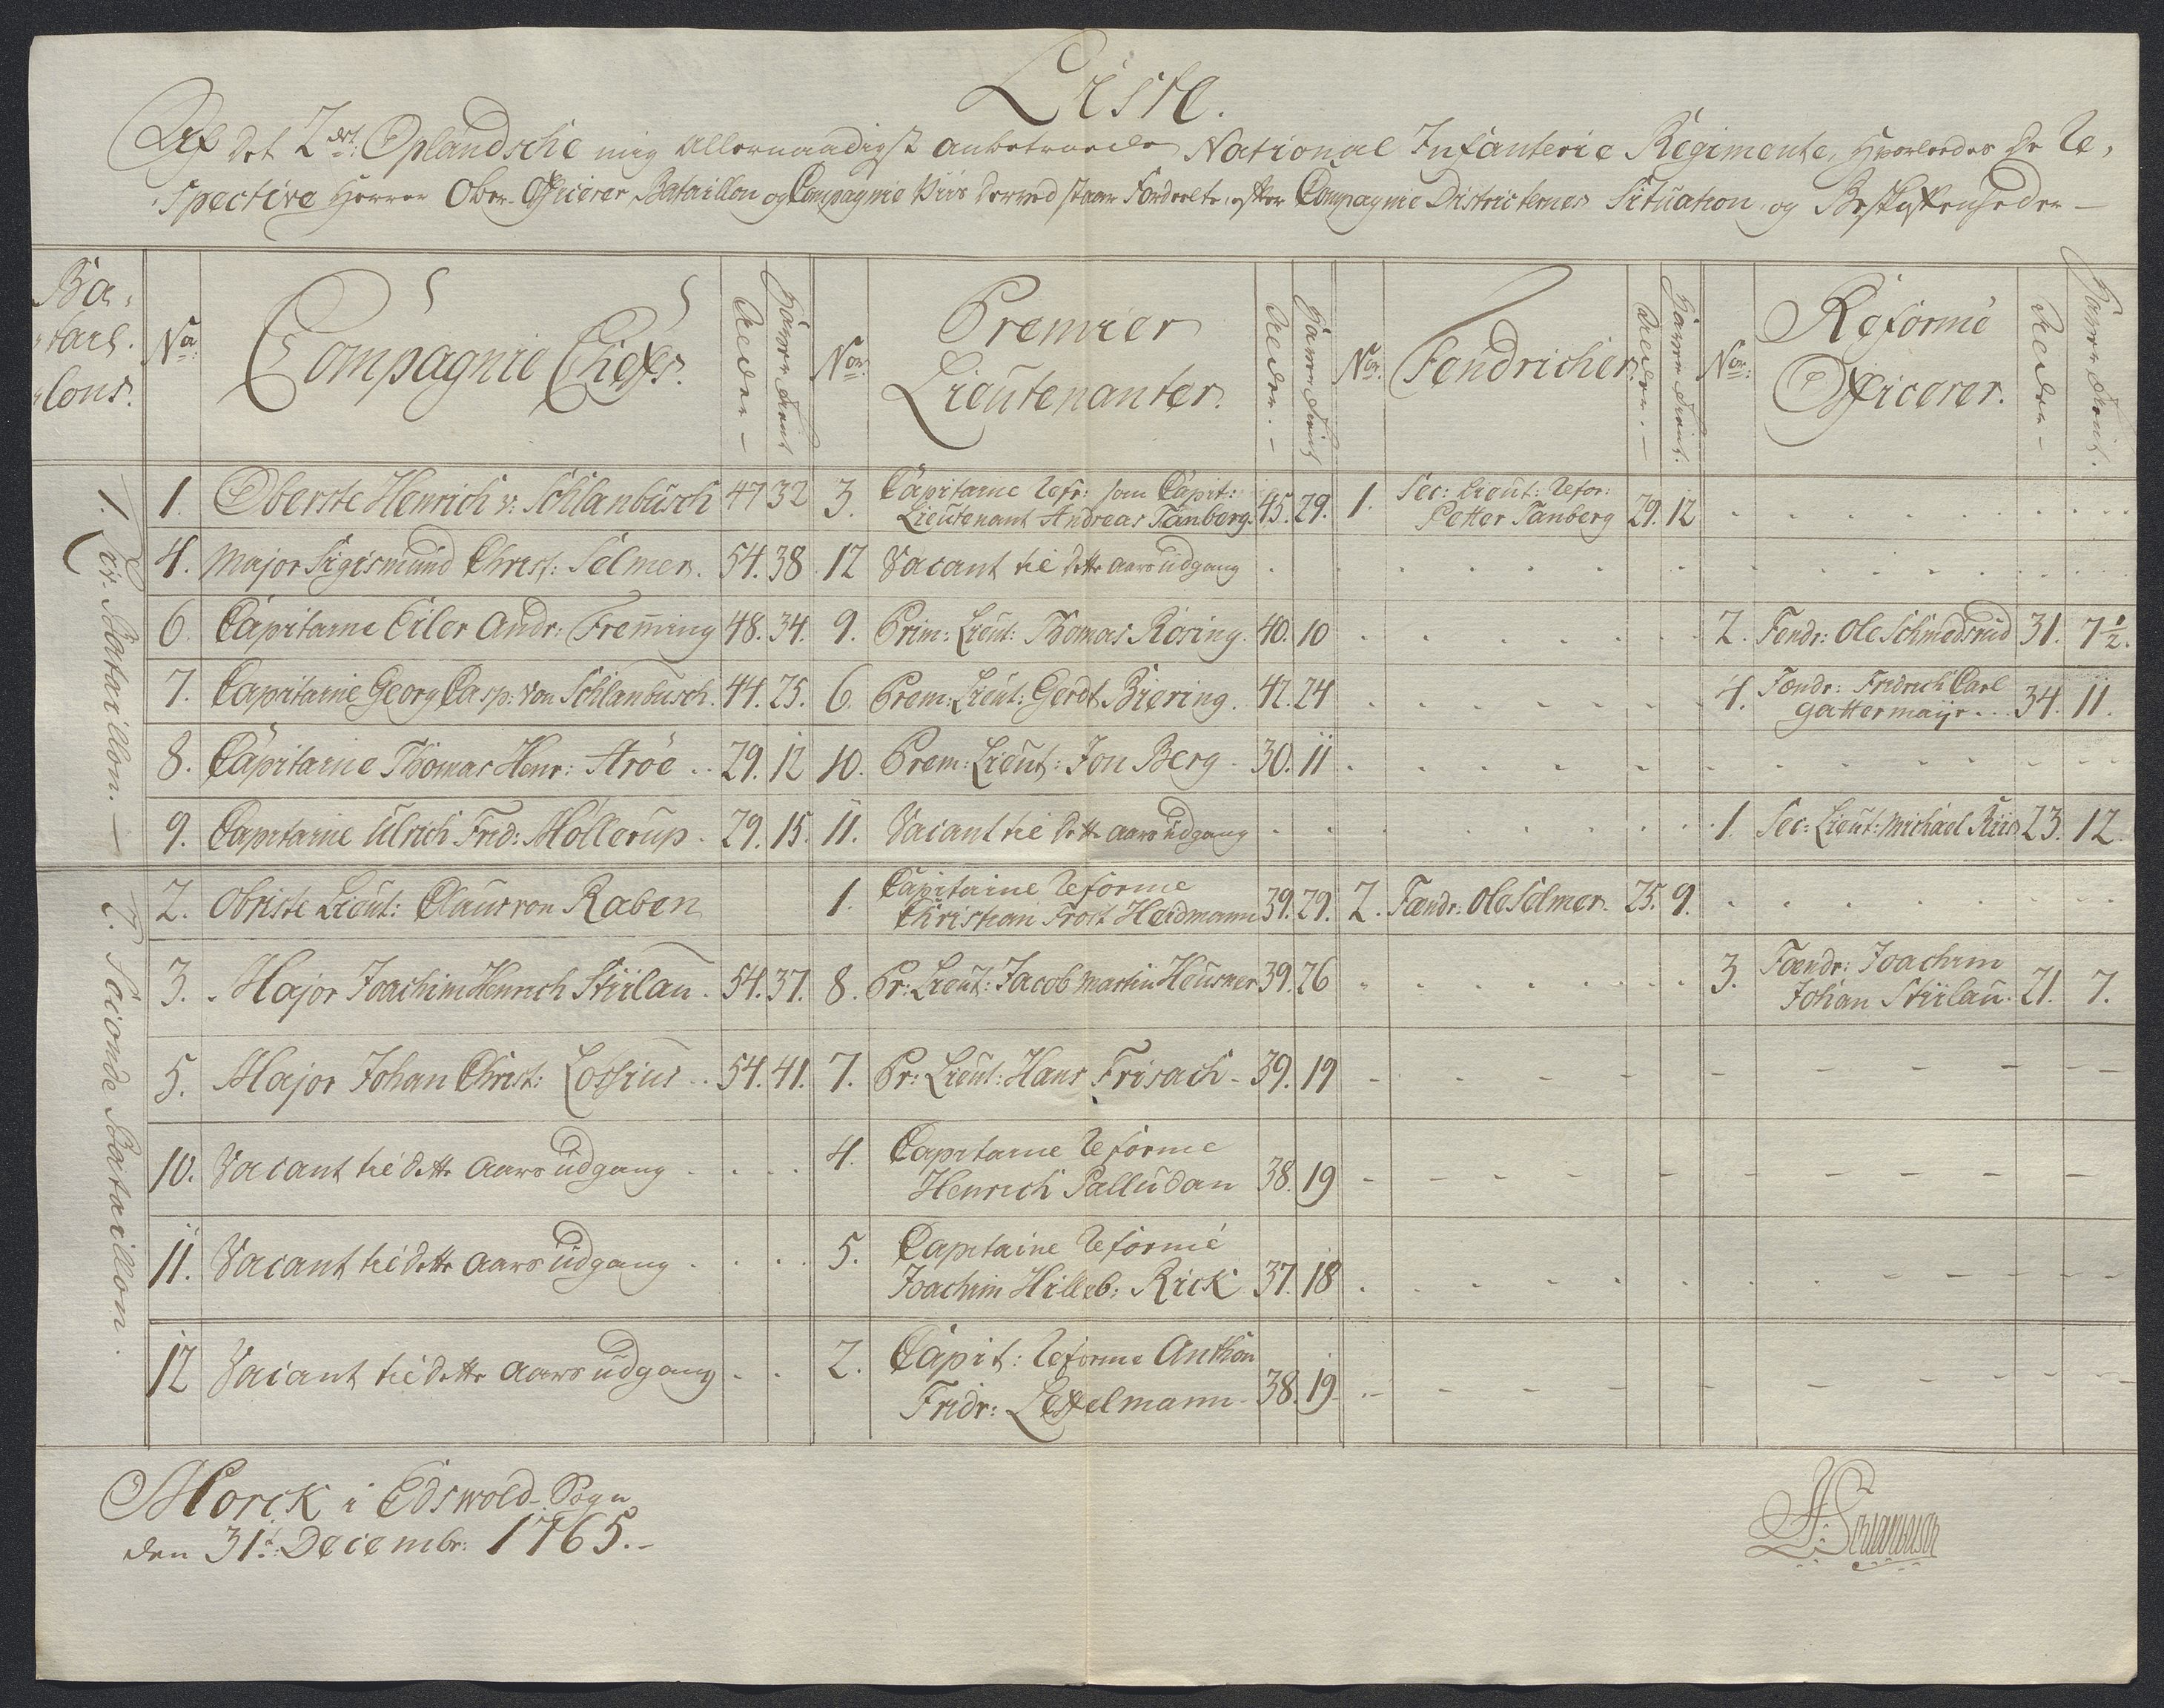 Liste.
Af det 2det: Oplandsche mig allernaadigst anbetroede National Infanterie Regimente, hvorledes de Re,
spective Herrer Ober-Officerer Bataillon og Compagnie Viis derved staar Fordeelte, efter Compagnie Districternes Situation og Beskaffenheder –
Ba,
tail.
lons.
No:
Compagnie Chefs.
Alder –
Haver tient
Nor:
Premier
Lieutenanter.
Alder. –
Haver tient
Nor:
Fendricher.
Alder. –
Haver tient.
Nor:
Reformé
Officerer.
Alder –
Haver tient.
1. ster Bataillon. –
1. Oberste Henrich v: Schlanbusch 47 32 3. Capitaine Refr: som Capit:
Lieutenant Andreas Tanberg. 45. 29. 1. Sec: Lieut: Refor:
Petter Tanberg 29. 12
4. Major Sigismund Christ: Selmer. 54. 38 12 Vacant til dette aars udgang
6. Capitaine Eiler Andr: Fremming 48. 34. 9. Prim: Lieut: Thomas Rosing. 40. 10 2. Fendr: Ole Schmedsrud 31. 7½.
7. Capitaine Georg Casp: von Schlanbusch. 44. 25. 6. Prem: Lieut: Gerdt Biering. 42. 24 4. Fendr: Fridrich Carl
Gattermaijr 34. 11.
8. Capitaine Thomas Henr: Aröe 29. 12 10. Prem: Lieut: Jon Berg 30. 11
9. Capitaine Ulrich Frid: Mollerup. 29. 15. 11. Vacant til dette aars udgang 1. Sec: Lieut: Michael Riis 23. 12.
2. Seconde Bataillon.
2. Obriste Lieut: Claus von Raben 1. Capitaine Reforme
Christian Frost Heidmann 39. 29. 2. Fændr: Ole Selmer. 25. 9.
3. Major Joachim Henrich Stiilau. 54. 37. 8. Pr: Lieut: Jacob Martin Heusner 39. 26 3. Fændr: Joachim
Johan Stiilau. 21. 7.
5. Major Johan Christ: Lossius 54. 41. 7. Pr: Lieut: Hans Frisach 39. 19
10. Vacant til dette aars udgang 4. Capitaine Reforme
Henrich Palludan 38. 19
11. Vacant til dette aars udgang 5. Capitaine Reformé
Joachim Hilleb: Rick 37. 18
12 Vacant til dette aars udgang 2. Capit: Reforme Anthon
Fridr: Leffelmann 38. 19
Morck i Edswold Sogn
den 31te: Decembr: 1765.
H: Schlanbusch